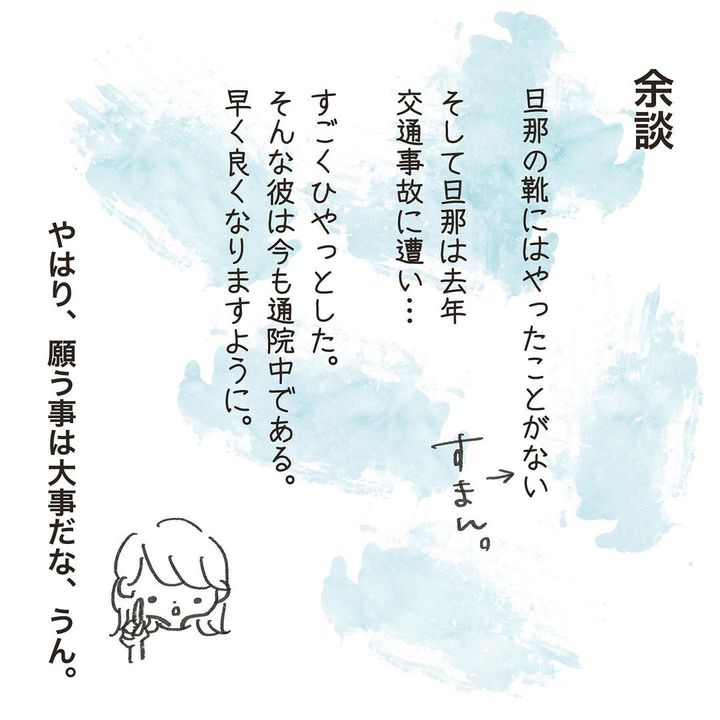 余談
旦那の靴にはやったことがない
→すまん。
そして旦那は去年
交通事故に遭い…
すごくひやっとした。
そんな彼は今も通院中である。
早く良くなりますように。
やはり、願う事は大事だな、うん。